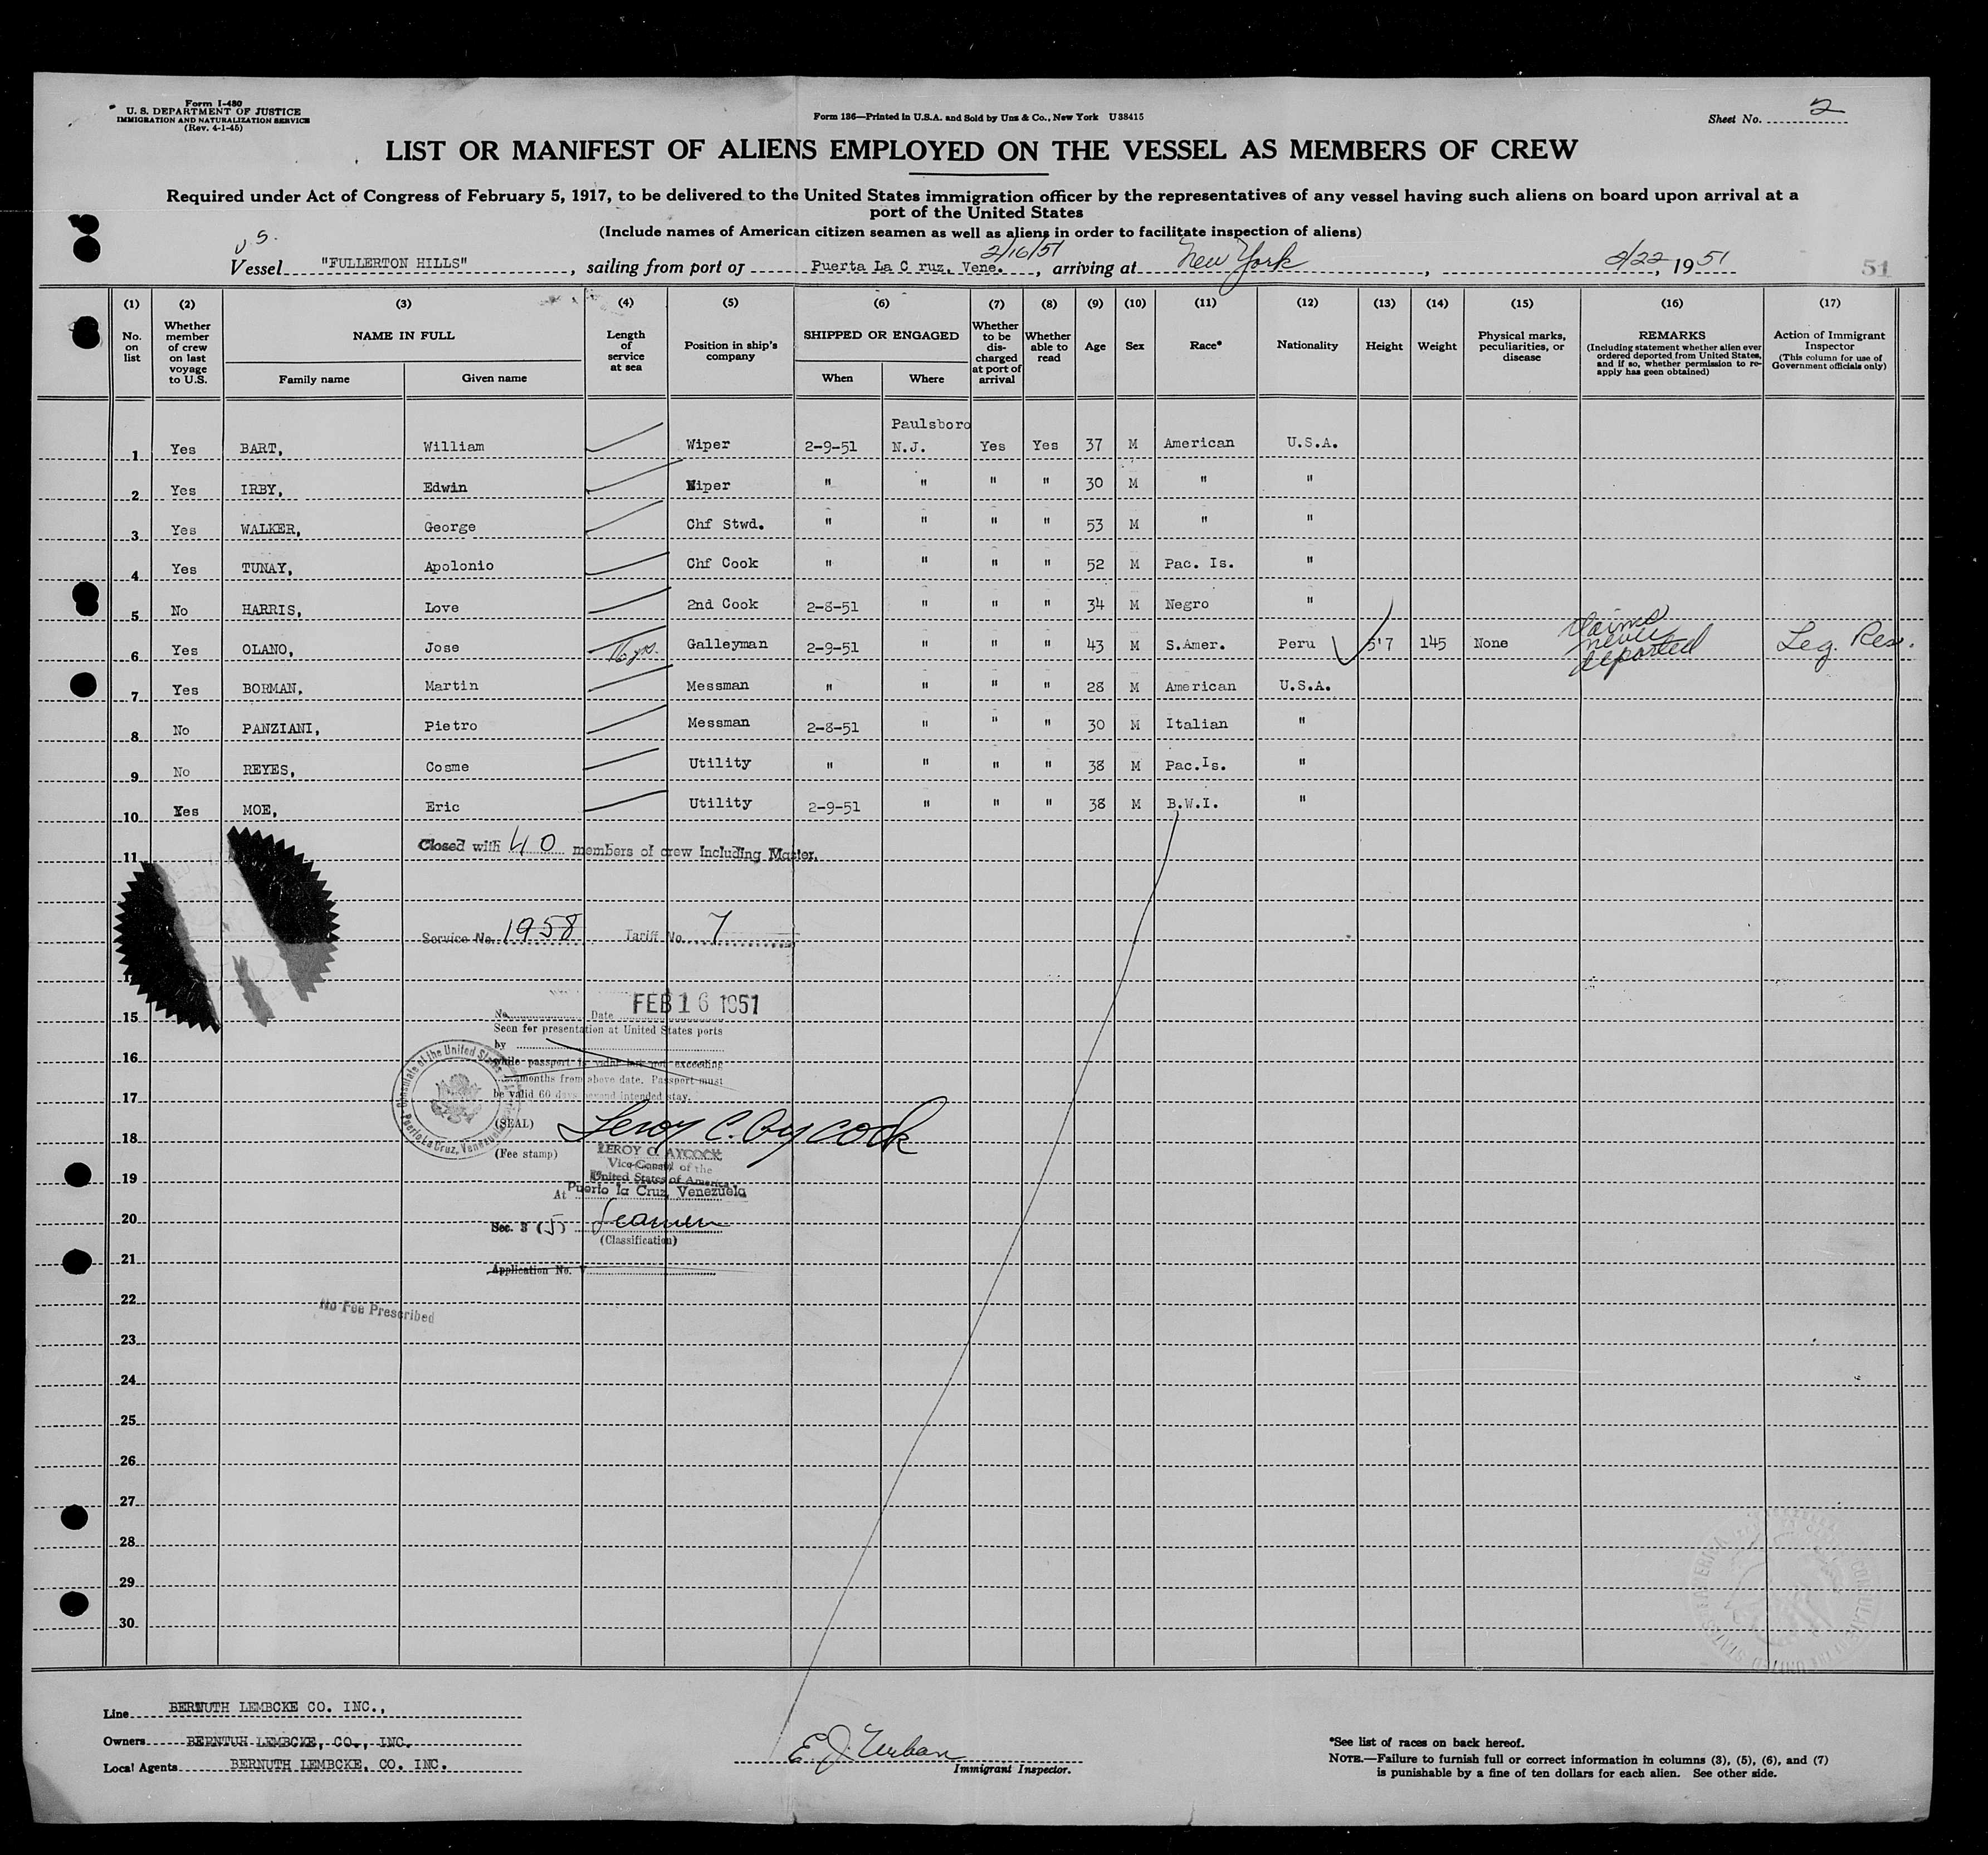 Form I-480
U. S. DEPARTMENT OF JUSTICE
IMMIGRATION AND NATURALIZATION SERVICE
(Rev. 4-1-45)
Form 136—Printed in U.S.A. and Sold by Unz & Co., New York U38415
Sheet No. 2
LIST OR MANIFEST OF ALIENS EMPLOYED ON THE VESSEL AS MEMBERS OF CREW
Required under Act of Congress of February 5, 1917, to be delivered to the United States immigration officer by the representatives of any vessel having such aliens on board upon arrival at a
port of the United States
(Include names of American citizen seamen as well as aliens in order to facilitate inspection of aliens)
U.S. 2/16/51
Vessel "FULLERTON HILLS", sailing from port of Puerta La C ruz, Vene., arriving at New York, 2/22, 1951
51
(1) (2) (3) (4) (5) (6) (7) (8) (9) (10) (11) (12) (13) (14) (15) (16) (17)
No. on list
Whether member of crew on last voyage to U.S.
NAME IN FULL
Family name Given name
Length of service at sea
Position in ship's company
SHIPPED OR ENGAGED
When Where
Whether to be discharged at port of arrival
Whether able to read
Age Sex Race* Nationality Height Weight
Physical marks, peculiarities, or disease
REMARKS
(Including statement whether alien ever ordered deported from United States, and if so, whether permission to re-apply has geen obtained)
Action of Immigrant Inspector
(This column for use of Government officials only)
1 Yes BART, William Wiper 2-9-51 Paulsboro N.J. Yes Yes 37 M American U.S.A.
2 Yes IRBY, Edwin Wiper " " " " 30 M " "
3 Yes WALKER, George Chf Stwd. " " " " 53 M " "
4 Yes TUNAY, Apolonio Chf Cook " " " " 52 M Pac. Is. "
5 No HARRIS, Love 2nd Cook 2-8-51 " " " 34 M Negro "
6 Yes OLANO, Jose 16 yrs. Galleyman 2-9-51 " " " 43 M S.Amer. Peru 5'7 145 None Claims never deported Leg. Res.
7 Yes BORMAN, Martin Messman " " " " 28 M American U.S.A.
8 No PANZIANI, Pietro Messman 2-8-51 " " " 30 M Italian "
9 No REYES, Cosme Utility " " " " 38 M Pac.Is. "
10 Yes MOE, Eric Utility 2-9-51 " " " 38 M B.W.I. "
11 Closed with 40 members of crew Including Master.
Service No. 1958 Tariff No. 7
15
No. Date FEB 16 1951
Seen for presentation at United States ports
by
16
while passport is valid but not exceeding
months from above date. Passport must
17
be valid 60 days beyond intended stay.
Consulate of the United States
Puerto La Cruz, Venezuela
(SEAL) Leroy C. Aycock
18
(Fee stamp) LEROY C. AYCOCK
Vice Consul of the
19
United States of America
At Puerto la Cruz, Venezuela
20
Sec. 3 (5) Seamen
(Classification)
21
Application No. V
22
No Fee Prescribed
23
24
25
26
27
28
29
30
Line BERNUTH LEMBCKE CO. INC.,
Owners BERNTUH LEMBCKE, CO., INC.
Local Agents BERNUTH LEMBCKE, CO. INC.
E. J. Urban
Immigrant Inspector.
*See list of races on back hereof.
NOTE.—Failure to furnish full or correct information in columns (3), (5), (6), and (7)
is punishable by a fine of ten dollars for each alien. See other side.